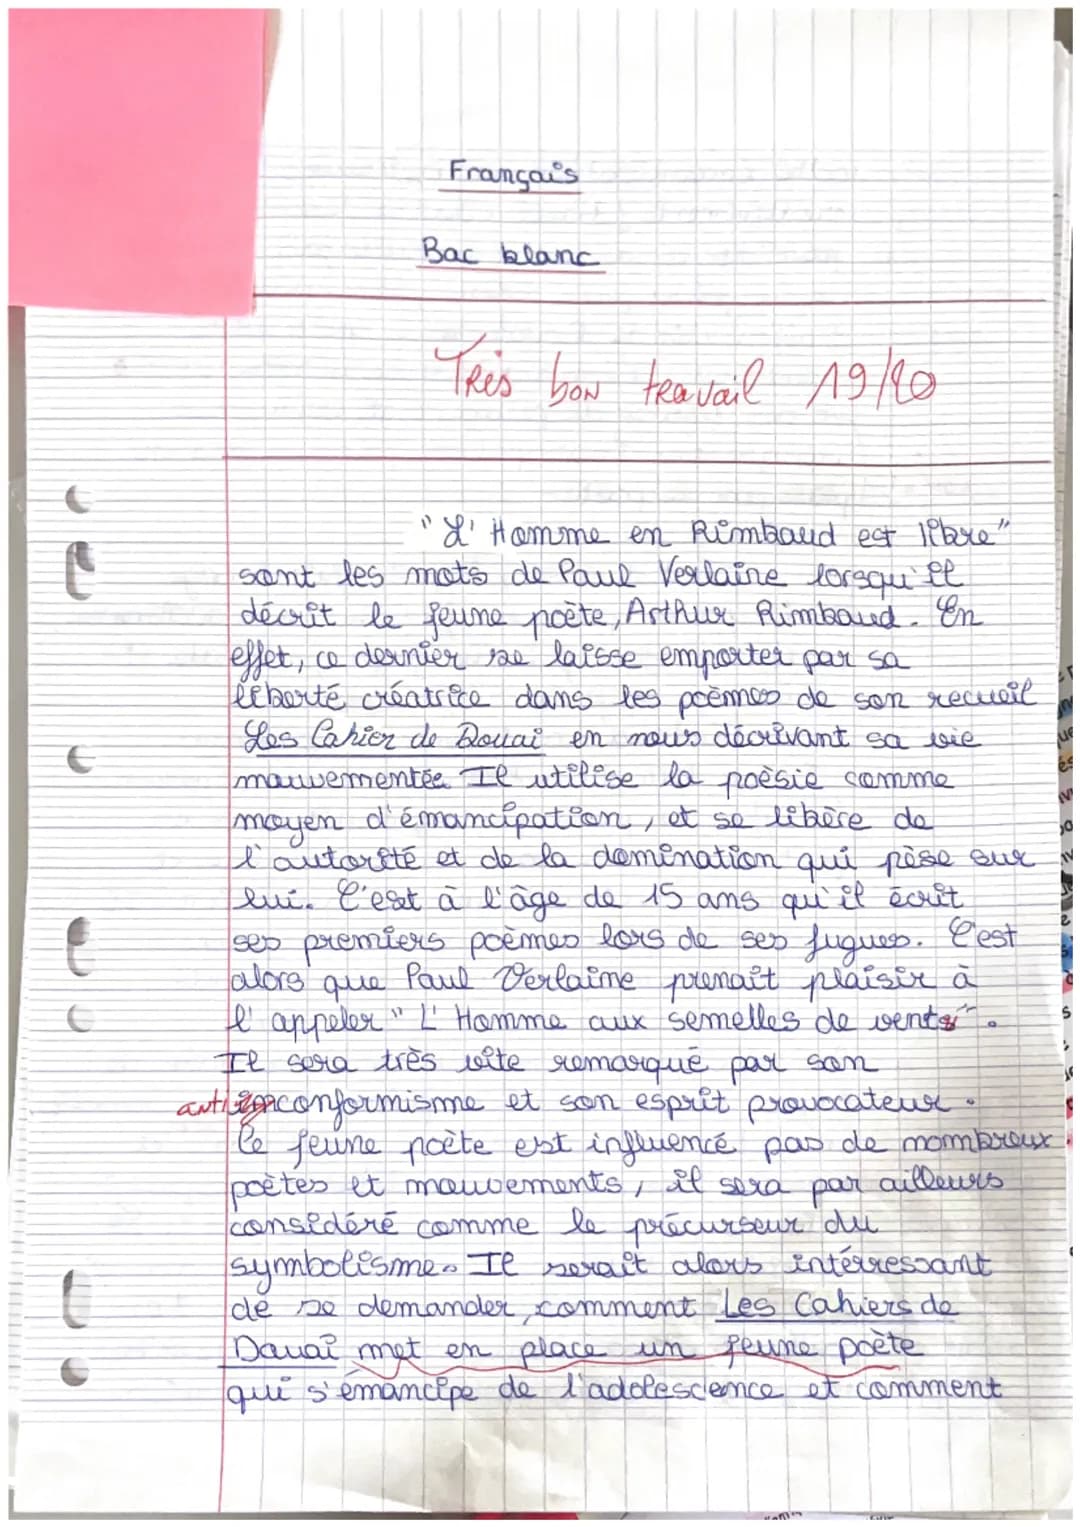 Français
Bac blanc
Très bon travail 19/20
"L'Homme en Rimbaud est libre"
sont les mots de Paul Verlaine lorsqu'il
décrit le jeune poète, Arthur Rimbaud. En
effet, ce dernier se laisse emporter par sa
liberté créatrice dans les poèmes de son recueil
Les Cahier de Douai en nous décrivant sa vie
mouvementée. Il utilise la poèsie comme
moyen d'émancipation, et se libère de
l'autorité et de la domination qui pèse sur
lui. C'est à l'âge de 15 ans qu'il écrit
ses premiers poèmes lors de ses fugues. C'est
alors que Paul Verlaine prenait plaisir à
l'appeler "L'Homme aux semelles de vents".
Il sera très vite remarqué par son
anticonformisme et son esprit provocateur.
Ce jeune poète est influencé pas de nombreux
poètes et mouvements, il sera par ailleurs
considéré comme le précurseur du
symbolisme. Il serait alors intérressant
de se demander, comment Les Cahiers de
Douai met en place un jeune poète
qui s'émancipe de l'adolescence et comment